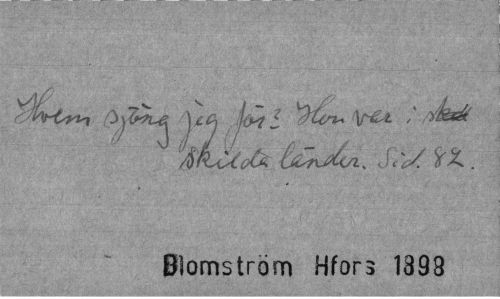 Hvem sjöng jeg för? Hon var i
skilda länder. Sid. 82.
Blomström Hfors 1898